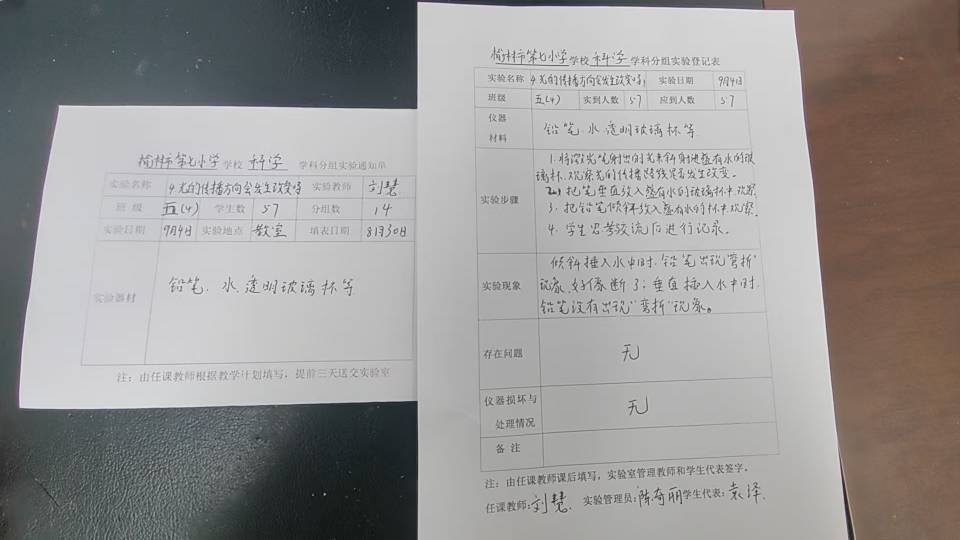 榆林市第七小学学校 科学 学科分组实验通知单
实验名称 4光的传播方向会发生改变吗 实验教师 刘慧
班 级 五(4) 学生数 57 分组数 14
实验日期 9月4日 实验地点 教室 填表日期 8月30日
实验器材 铅笔、水、透明玻璃杯等
注：由任课教师根据教学计划填写，提前三天送交实验室
榆林市第七小学学校 科学 学科分组实验登记表
实验名称 4光的传播方向会发生改变吗 实验日期 9月4日
班级 五(4) 实到人数 57 应到人数 57
仪器
材料
铅笔、水、透明玻璃杯等
实验步骤
1.将激光笔射出的光束斜射他盛有水的玻
璃杯,观察光的传播路线是否发生改变。
2.把铅笔垂直放入盛有水的玻璃杯中,观察
3、把铅笔倾斜放入盛有水的杯中观察。
4、学生思考交流后进行记录。
实验现象
倾斜插入水中时,铅笔出现"弯折"
现象,好像断了;垂直插入水中时,
铅笔没有出现"弯折"现象。
存在问题 无
仪器损坏与
处理情况
无
备 注
注：由任课教师课后填写，实验室管理教师和学生代表签字。
任课教师:刘慧 实验管理员:陈奇丽 学生代表:袁泽